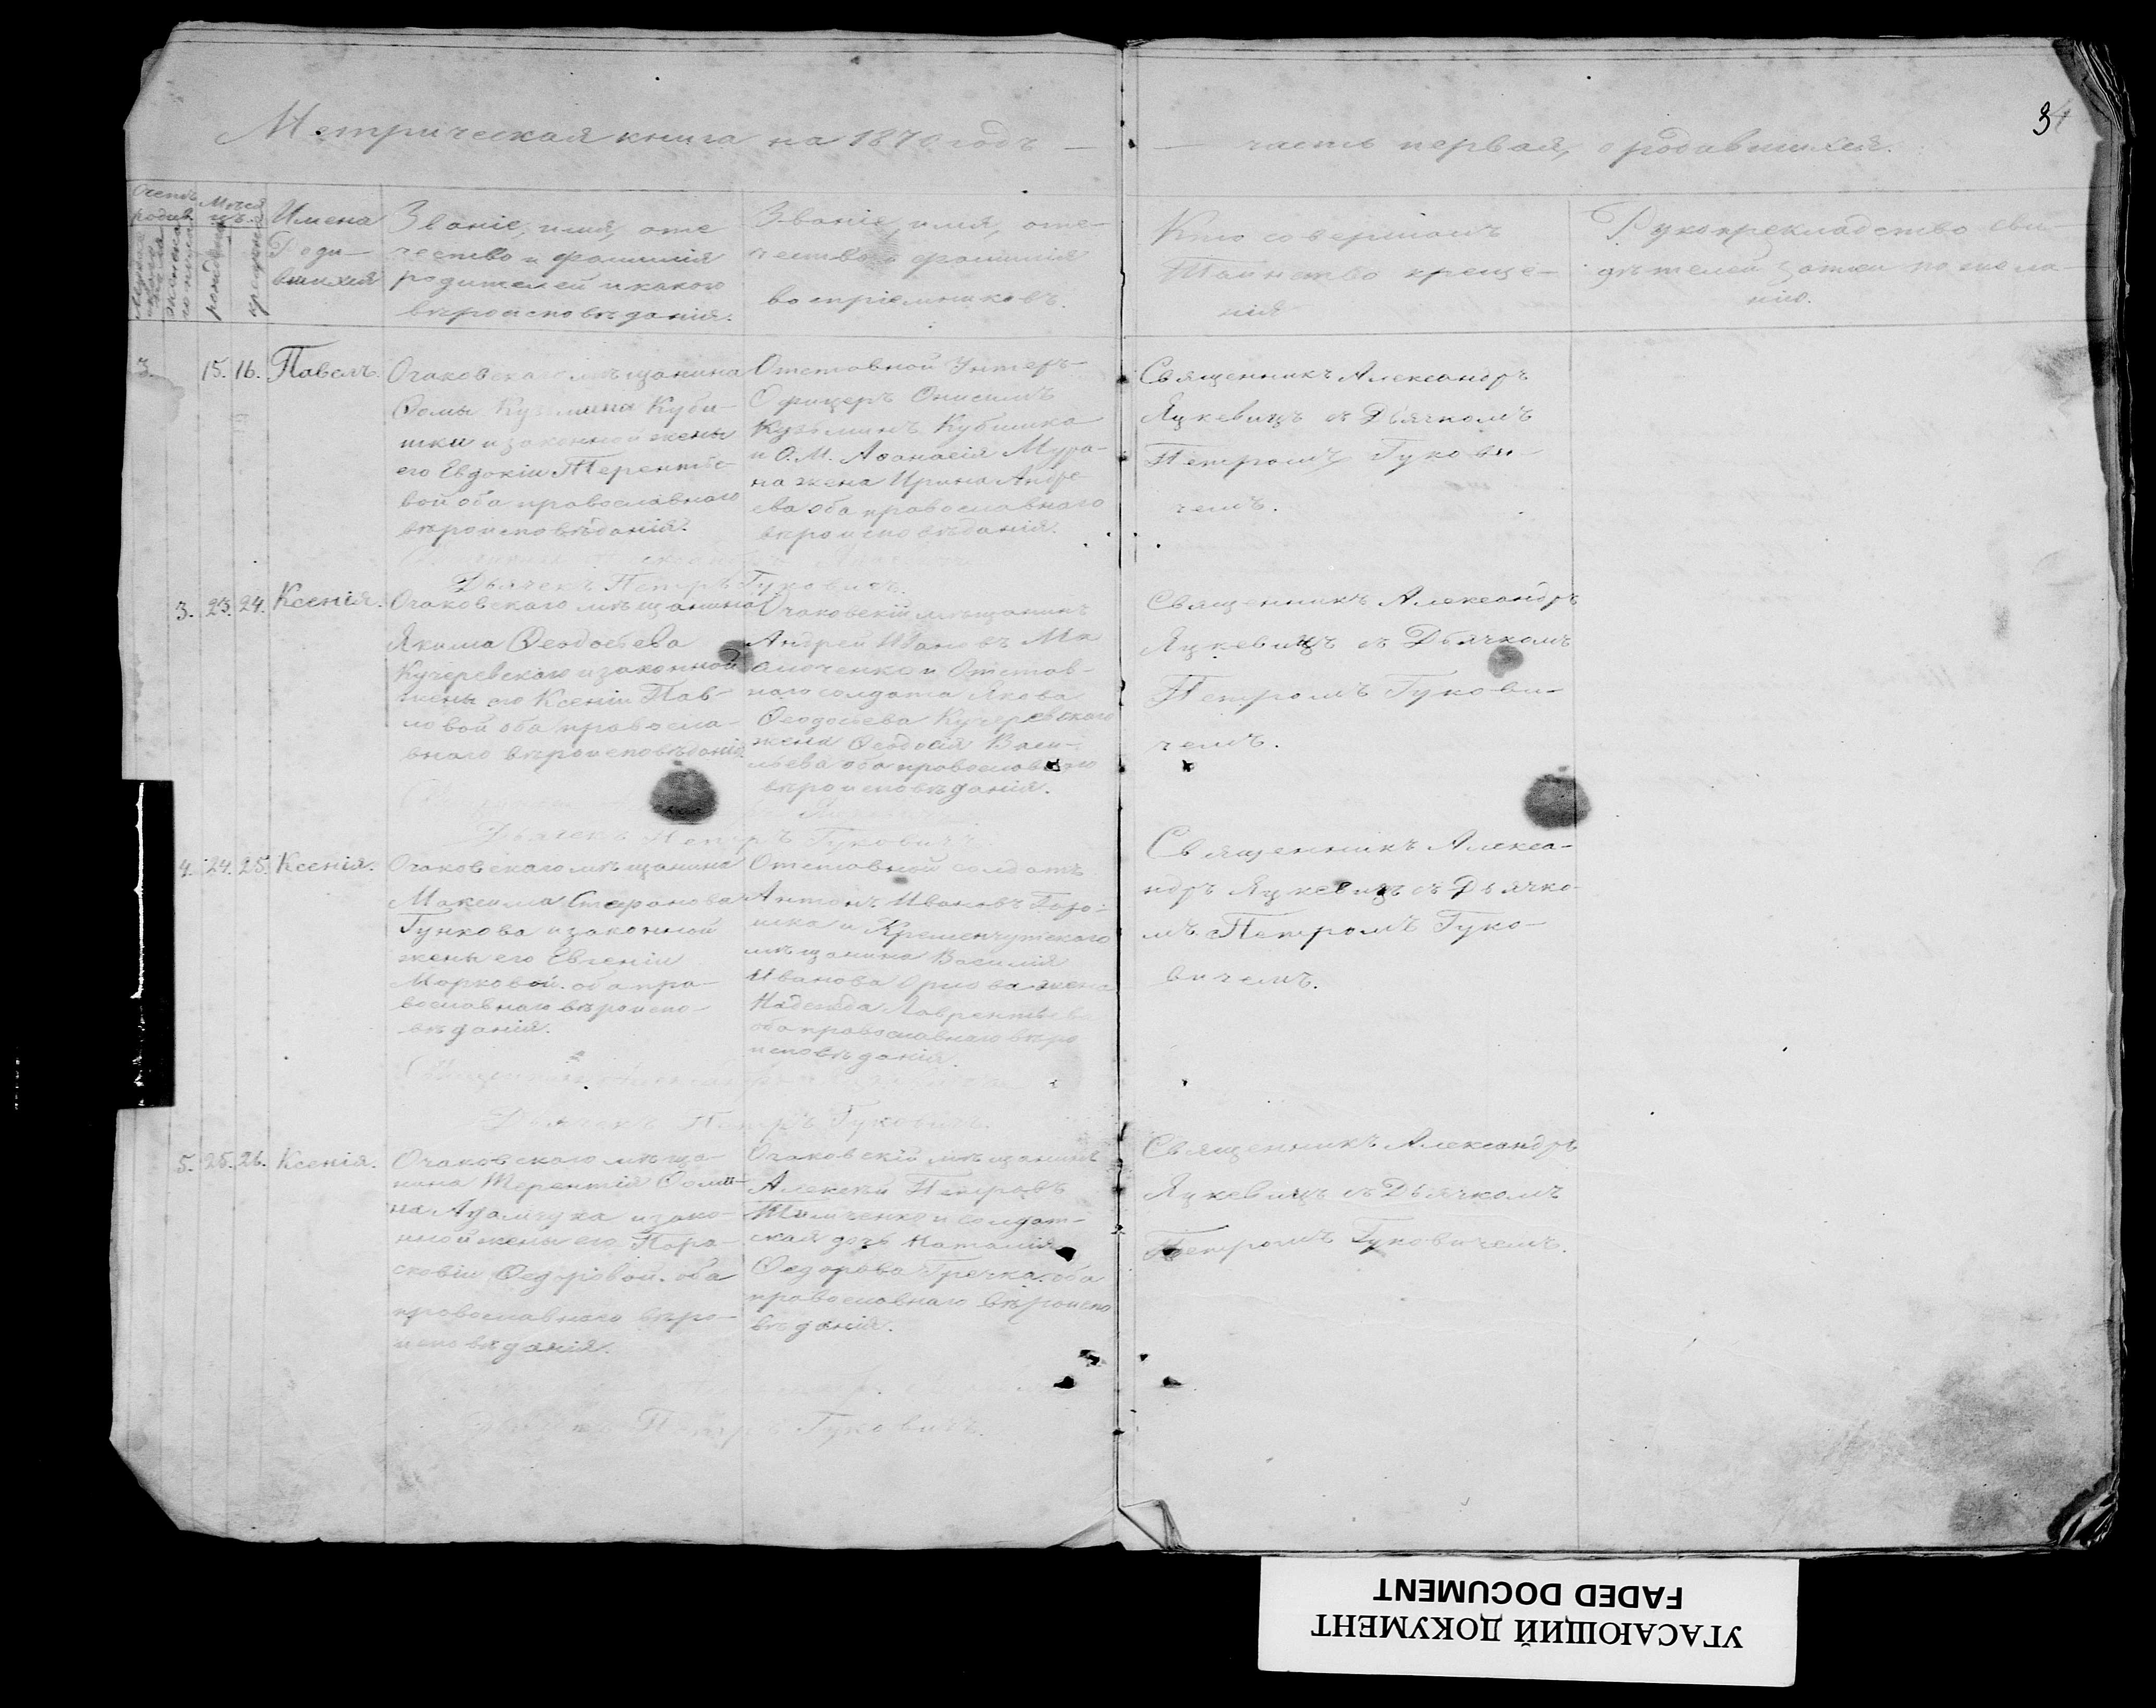 Метрическая книга на 1870 годъ —
— часть первая, о родившихся.
34
Имена
Роди—
вшихся
Званіе, имя, оте
чество и фамилія
родителей и какого
вѣроисповѣданія.
Званіе, имя, оте—
чество и фамилія
воспріемниковъ.
Кто совершалъ
Таинство креще—
нія
Рукоприкладство сви—
дѣтелей записи по жела—
нію.
3. 15. 16. Павелъ.
Очаковскаго мѣщанина
Ѳомы Кузьмина Куби—
шки и законной жены
его Евдокіи Терентье—
вой оба православнаго
вѣроисповѣданія.
Отставной Унтеръ—
Офицеръ Онисимъ
Кузьминъ Кубишка
и О. М. Аѳанасія Мура—
на жена Ирина Андре
ева оба православнаго
вѣроисповѣданія.
Священникъ Александръ
Яцкевичъ съ Дьячкомъ
Петромъ Гукови—
чемъ.
Дьячекъ Петръ Гуковичъ.
3. 23. 24. Ксенія.
Очаковскаго мѣщанина
Якима Ѳеодосьева
Кучеревскаго и законной
жены его Ксеніи Пав—
ловой оба правосла—
внаго вѣроисповѣданія.
Очаковскій мѣщанинъ
Андрей Ивановъ
и Отстав—
наго солдата Якова
Ѳеодосьева Кучеревскаго
жена Ѳеодосія Васи—
льева оба православнаго
вѣроисповѣданія.
Священникъ Александръ
Яцкевичъ съ Дьячкомъ
Петромъ Гукови—
чемъ.
Дьячекъ Петръ Гуковичъ.
4. 24. 25. Ксенія.
Очаковскаго мѣщанина
Максима Стефанова
Гункова и законной
жены его Евгеніи
Марковой. оба пра—
вославнаго вѣроиспо—
вѣданія.
Отставной солдатъ
Антонъ Ивановъ
и Кременчугскаго
мѣщанина Василія
Иванова Орлова жена
Надежда Лаврентьева
оба православнаго вѣро
исповѣданія.
Священникъ Алекса—
ндръ Яцкевичъ съ Дьячко—
мъ Петромъ Гуко—
вичемъ.
Дьячекъ Петръ Гуковичъ.
5. 25. 26. Ксенія.
Очаковскаго мѣща—
нина Терентія Ѳоми—
на Адамчука и зако—
нной жены его Пара—
скевіи Ѳедоровой. оба
православнаго вѣро—
исповѣданія.
Очаковскій мѣщанинъ
Алексѣй Петровъ
Тимченко и солдат—
ская дочь Наталія
Ѳедорова Гречка. оба
православнаго вѣроиспо
вѣданія.
Священникъ Александръ
Яцкевичъ съ Дьячкомъ
Петромъ Гуковичемъ.
Дьячекъ Петръ Гуковичъ.
УГАСАЮЩИЙ ДОКУМЕНТ
FADED DOCUMENT